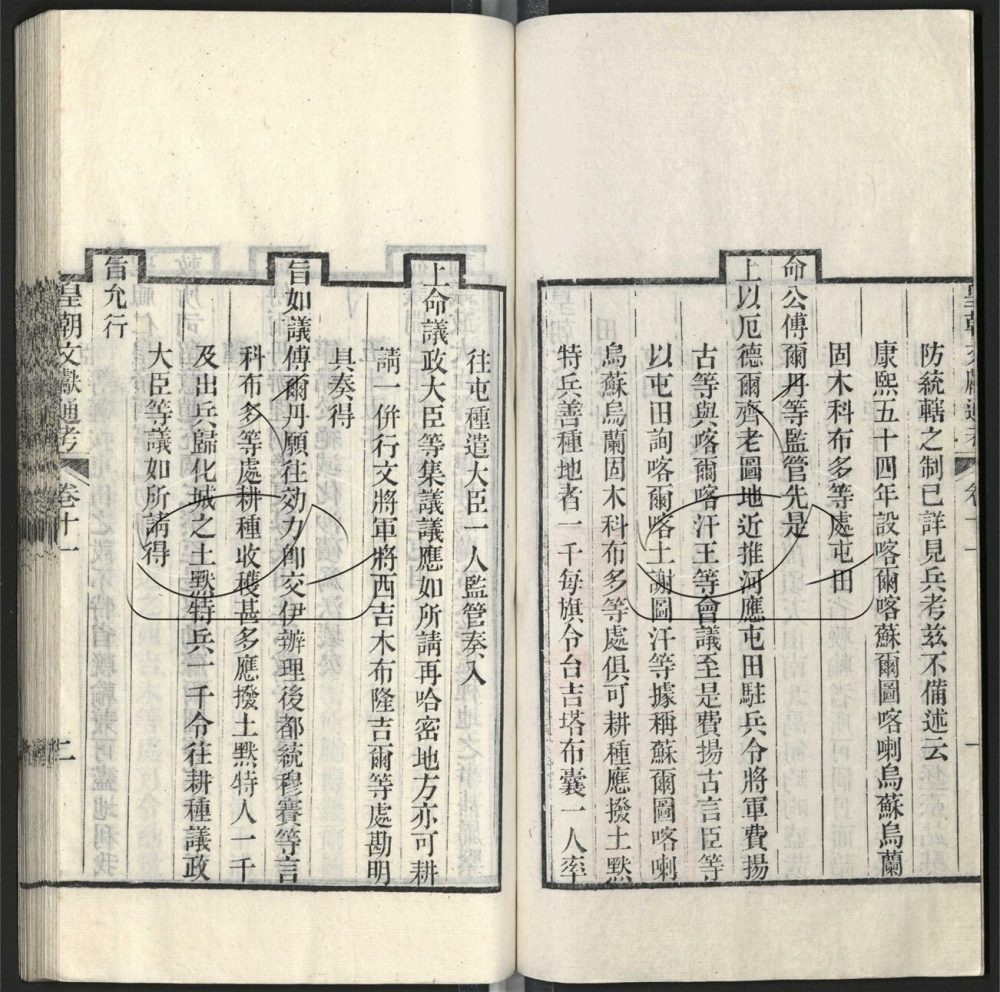 防統轄之制已詳見兵考玆不備述云
康熙五十四年設喀爾喀蘇爾圖喀喇烏蘇烏蘭
固木科布多等處屯田
命公傅爾丹等監管先是
上以厄德爾齊老圖地近推河應屯田駐兵令將軍費揚
古等與喀爾喀汗王等會議至是費揚古言臣等
以屯田詢喀爾喀土謝圖汗等據稱蘇爾圖喀喇
烏蘇烏蘭固木科布多等處俱可耕種應撥土默
特兵善種地者一千每旗令台吉塔布囊一人率
往屯種遣大臣一人監管奏入
上命議政大臣等集議議應如所請再哈密地方亦可耕
請一併行文將軍將西吉木布隆吉爾等處勘明
具奏得
旨如議傅爾丹願往効力卽交伊辦理後都統穆賽等言
科布多等處耕種收穫甚多應撥土默特人一千
及出兵歸化城之土默特兵一千令往耕種議政
大臣等議如所請得
旨允行
皇朝文獻通考 卷十一 二